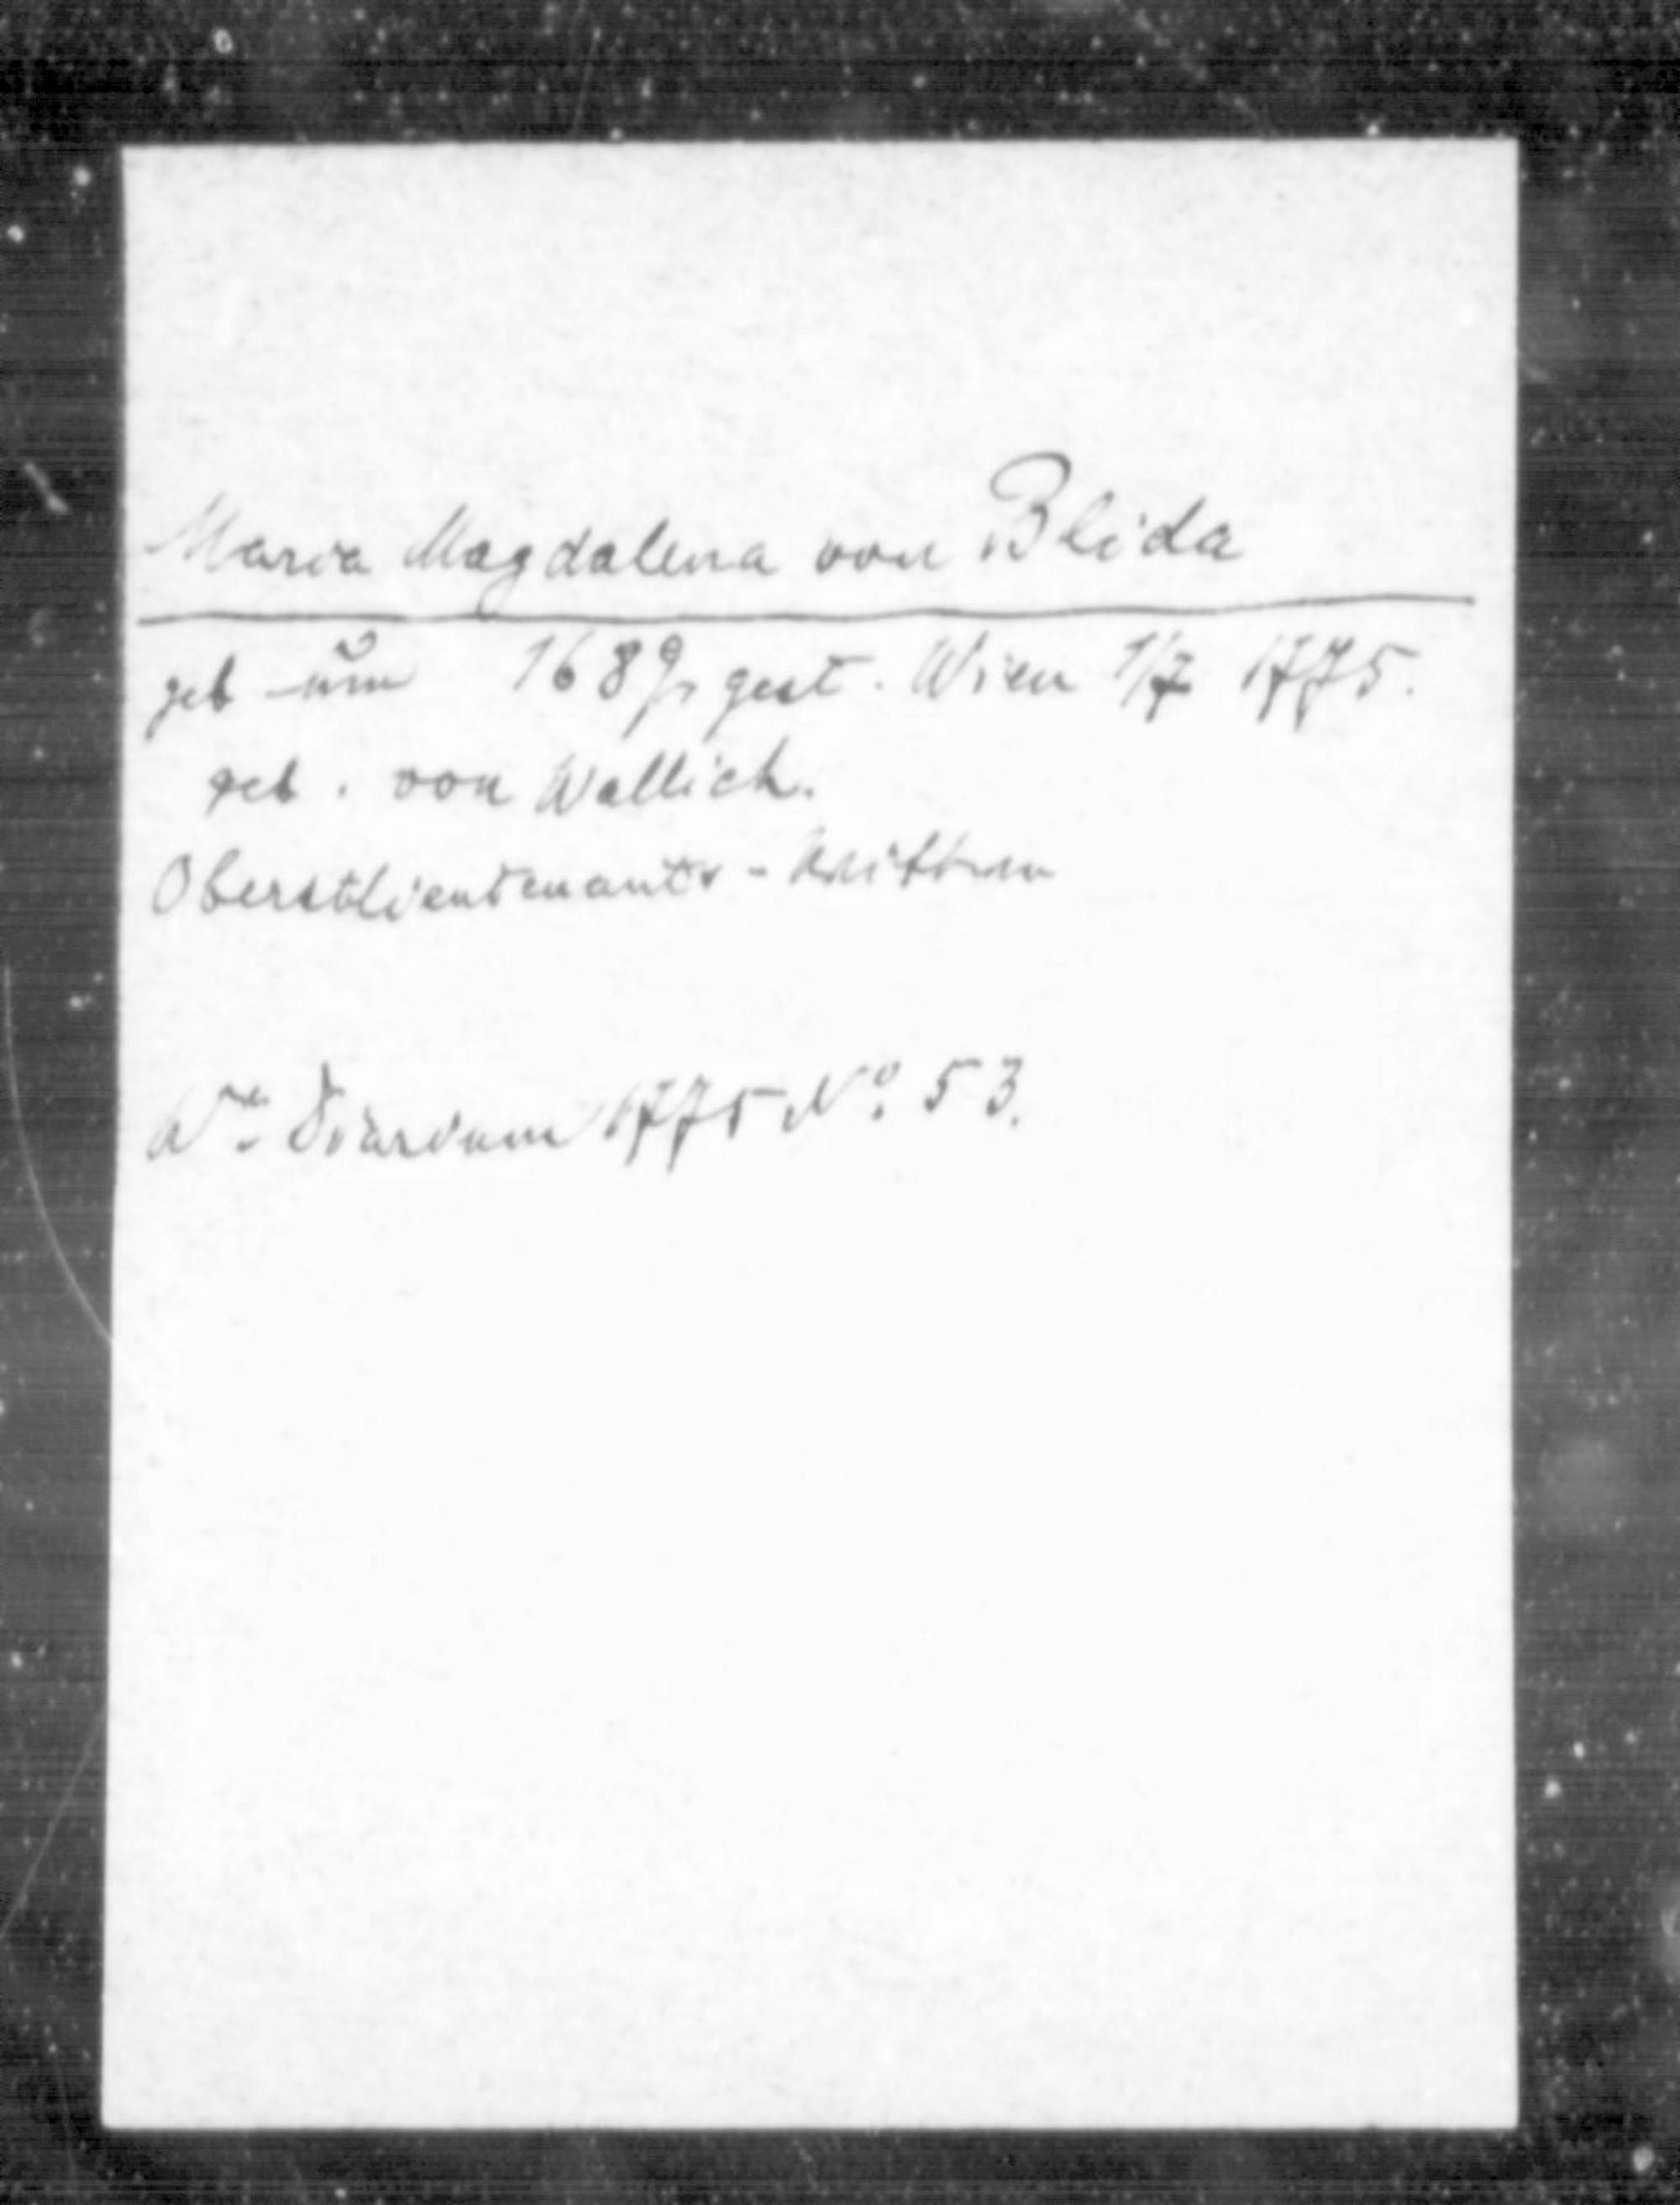 Maria Magdalena von Blida
geb um 1689, gest. Wien 1/7 1775.
geb. von Wallich.
Oberstlieutenants-Wittwe
Wr. Diarium 1775 No. 53.